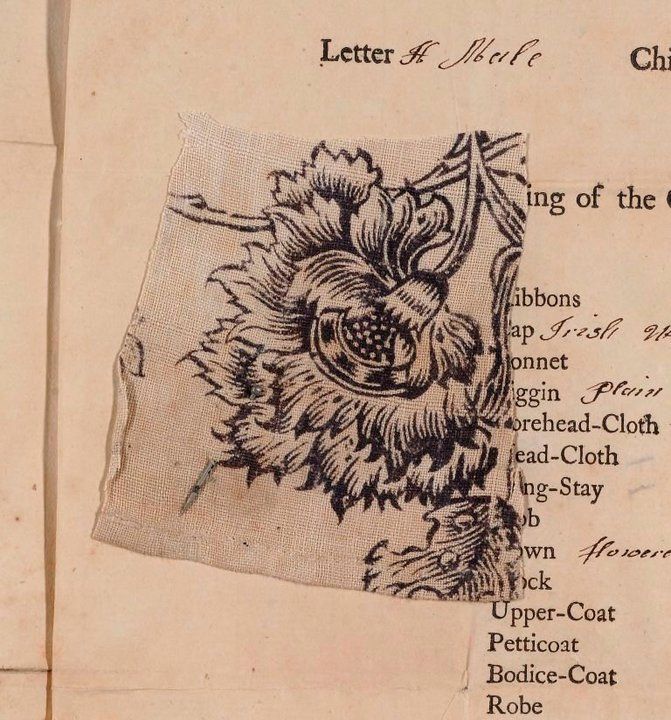 Letter A Male Chi
ing of the
ibbons
ap Irish
onnet
iggin Plain
orehead-Cloth
ead-Cloth
ng-Stay
ob
own flowere
ock
Upper-Coat
Petticoat
Bodice-Coat
Robe